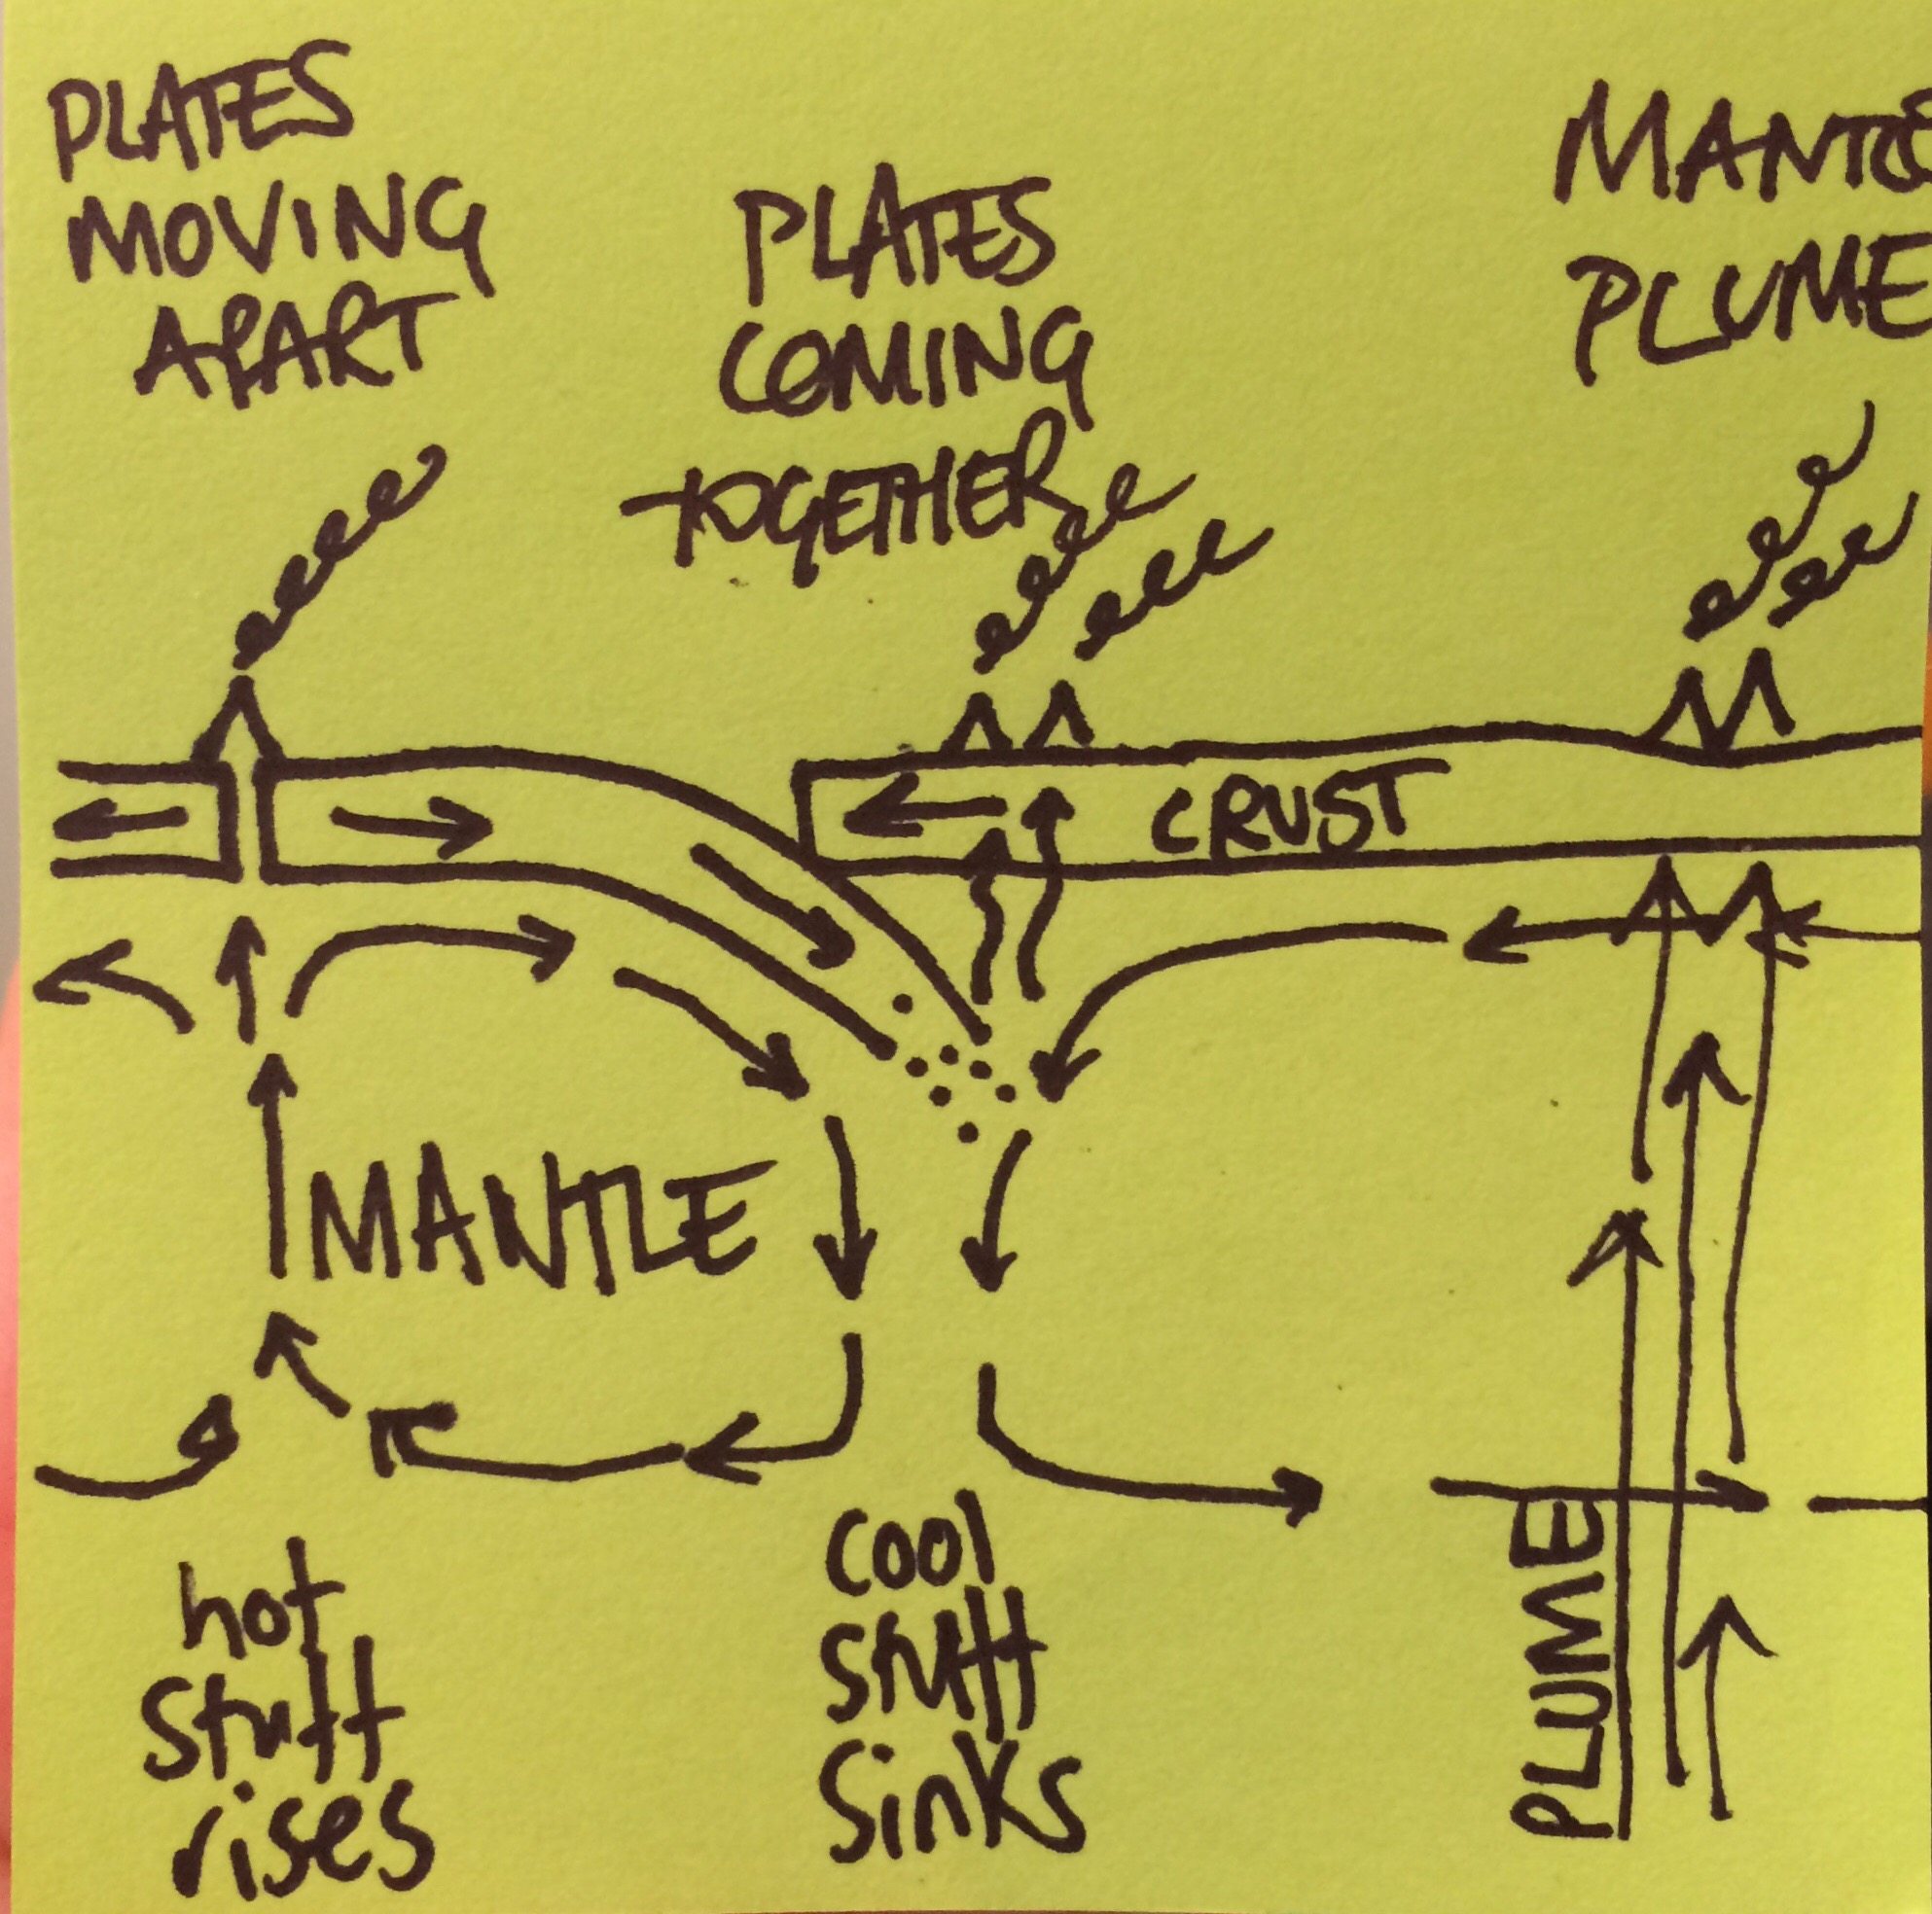 PLATES
MOVING
APART
PLATES
COMING
TOGETHER
MANTLE
PLUME
CRUST
MANTLE
hot
stuff
rises
cool
stuff
sinks
PLUME